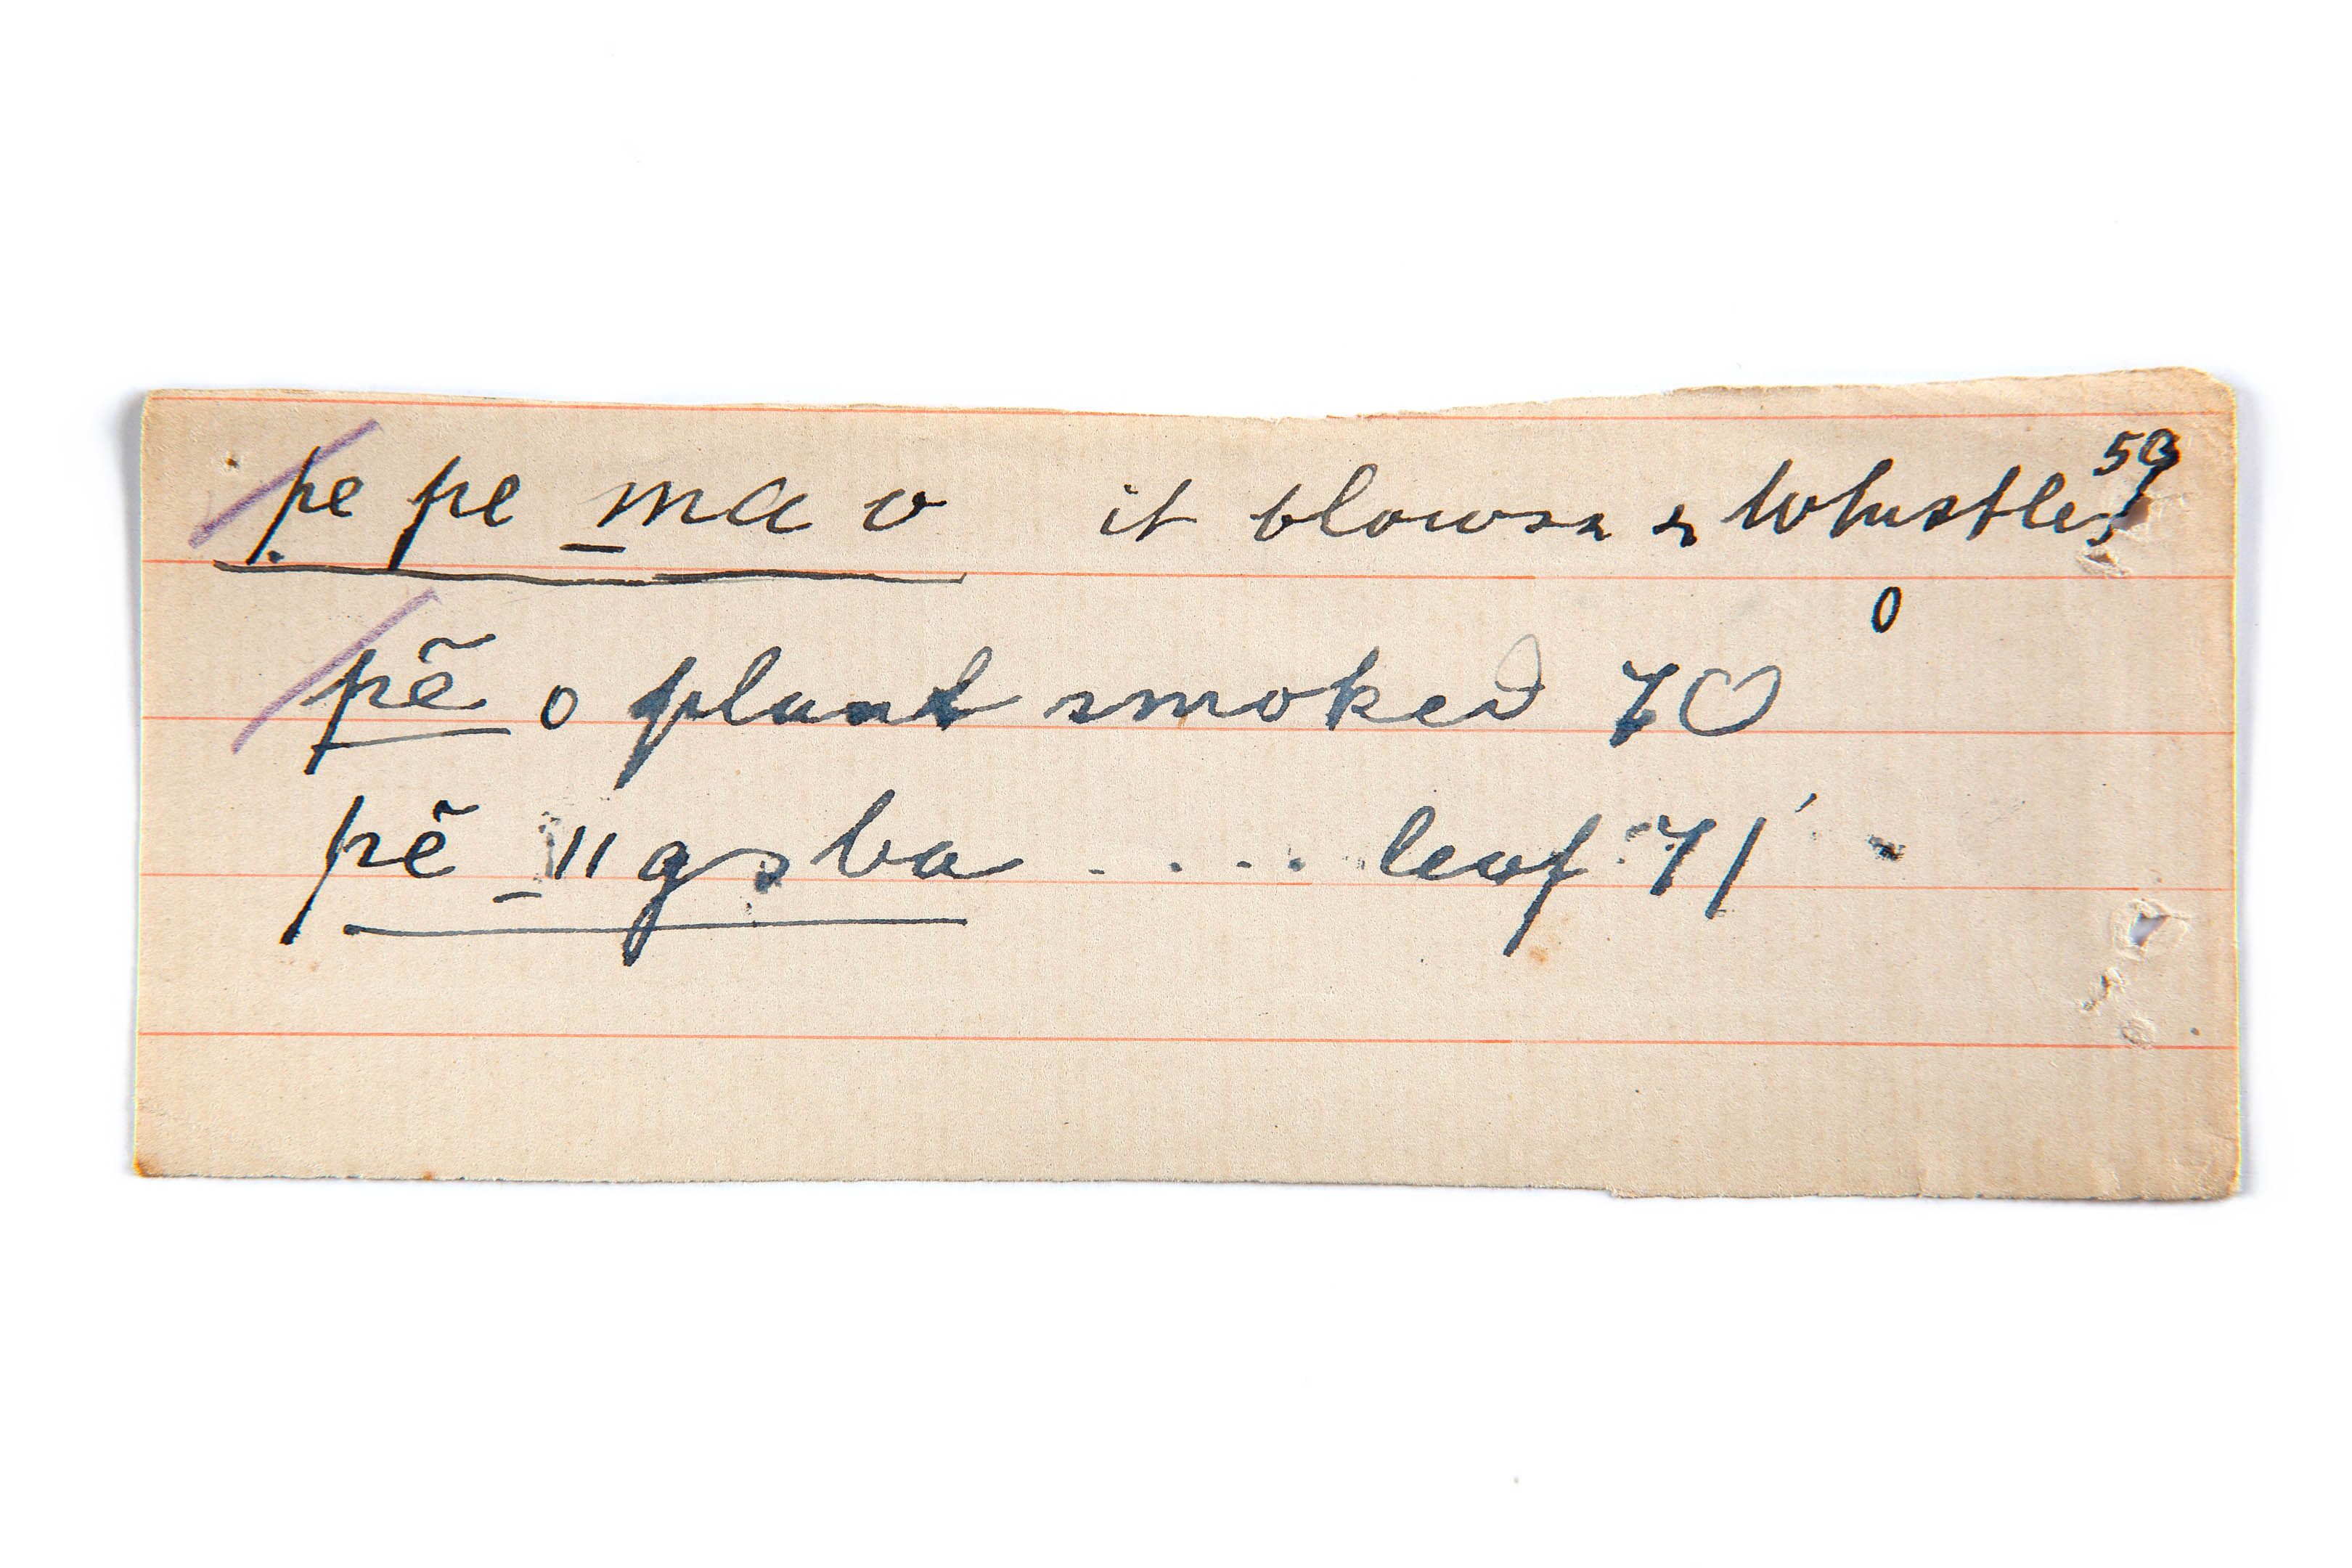 pe pe ma o it blows & whistles 59
0
pē o plant smoked 70
pē ǁgsba . . . . leaf 71